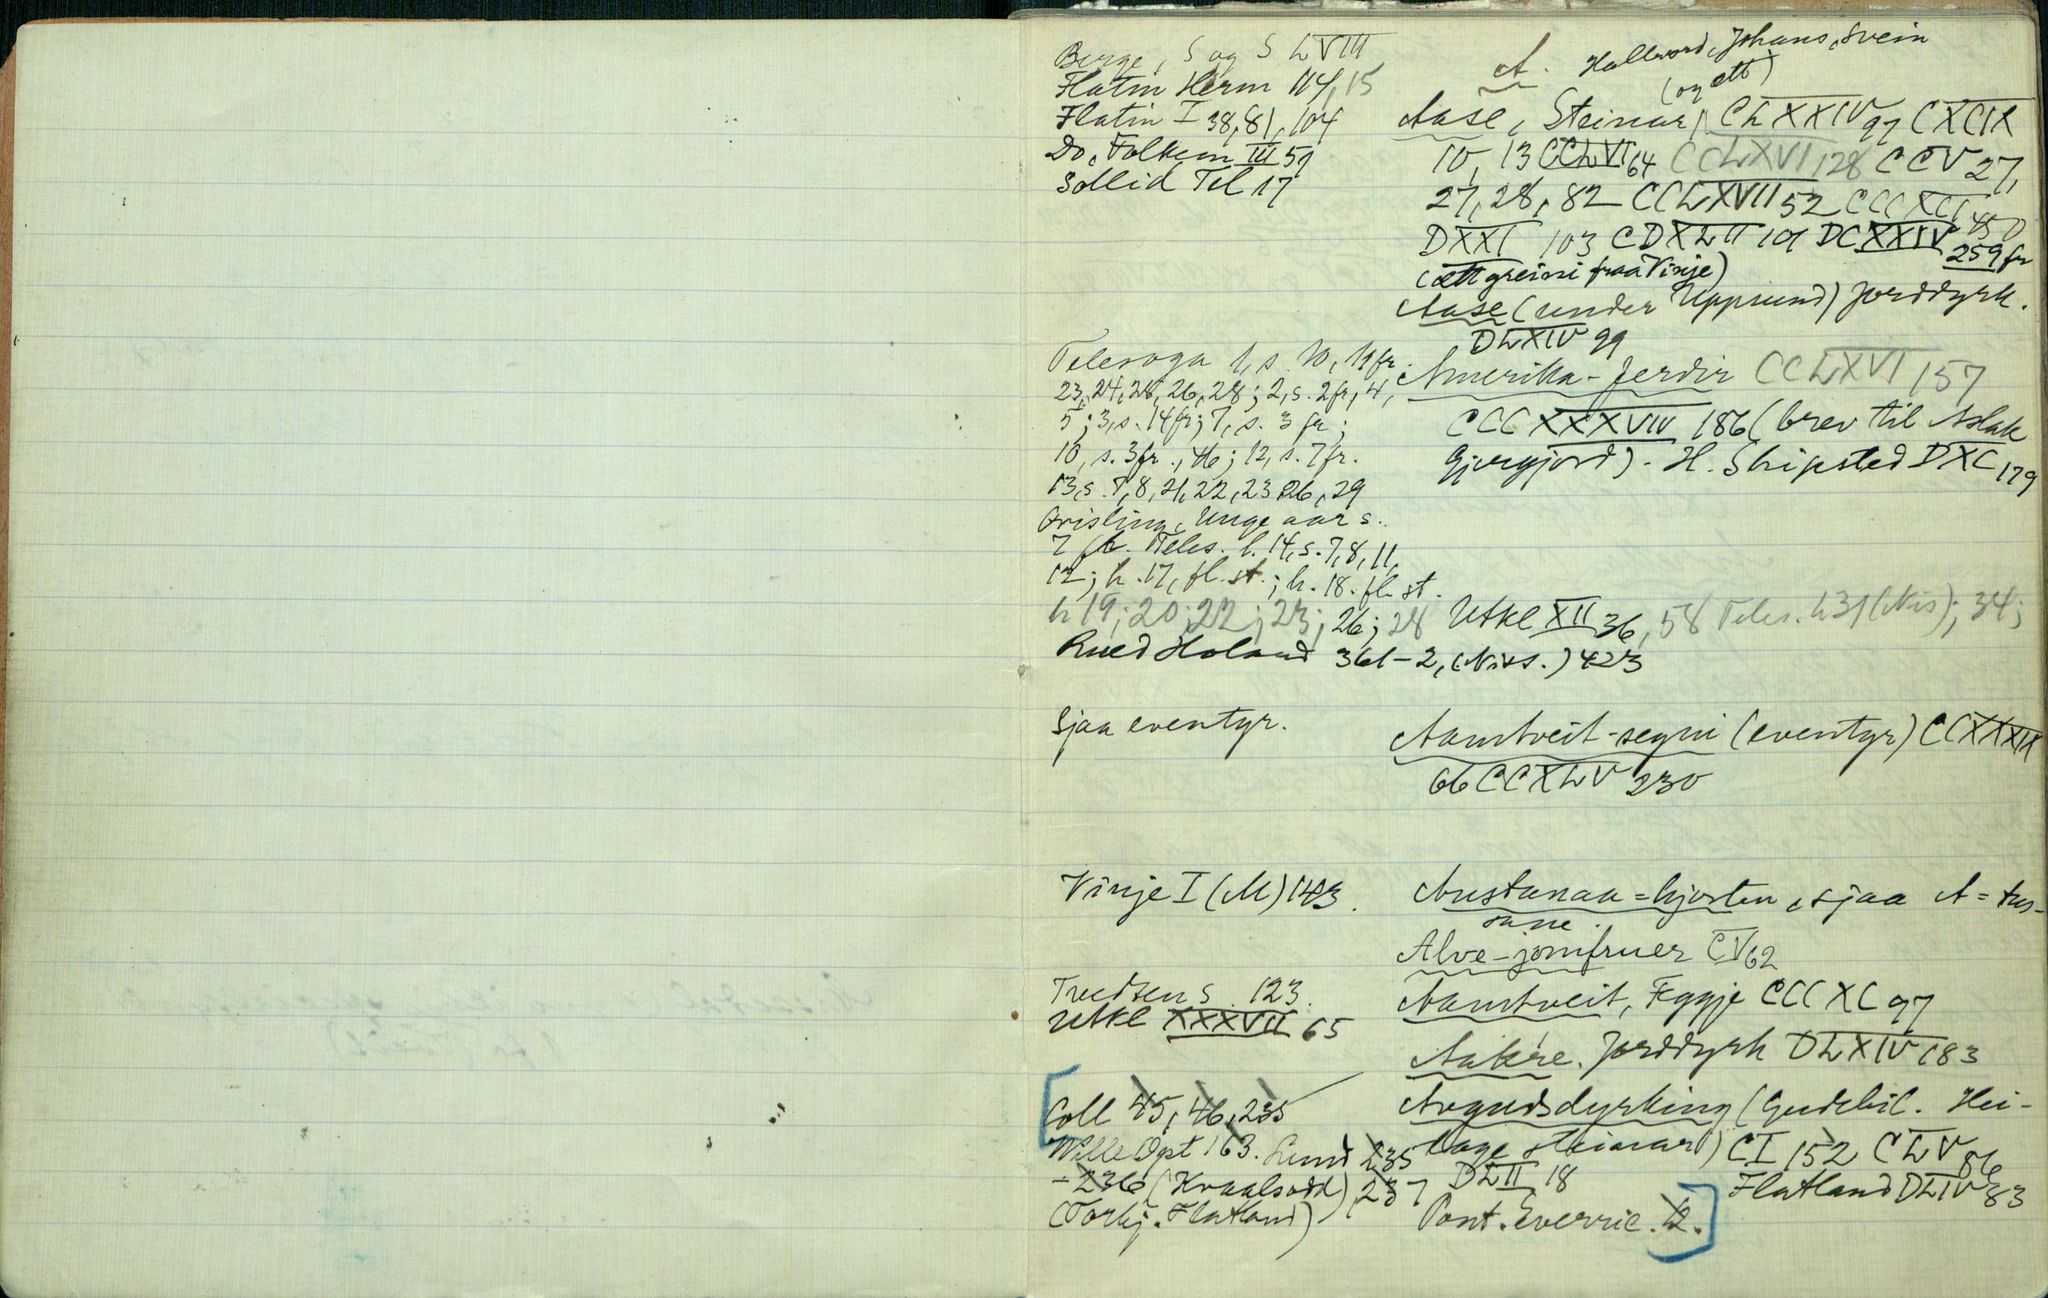 Berge, S og S LVIII
Flatin Herm 114, 15
Flatin I 38, 81, 104
Do, Folkem III 57
Sollid Tel 17
A. Hallvord, Johans, Svein
(og ætt)
Aase, Steinar, CLXXIV 97 CXCIX
10, 13 CCLVI 64 CCLXVI 128 CCV 27,
27, 28, 82 CCLXVII 52 CCCXCI 450
DXXI 103 CDXLII 101 DCXXIV 259 fr
(ættgreini fraa Vinje)
Aase (under Uppsund) Jorddyrk.
DLXIV 99
Telesoga 1, s. 10, 19 fr.
23, 24, 25, 26, 28; 2, s. 2 fr, 4,
5; 3, s. 14 fr; 7, s. 3 fr;
10, s. 3 fr., 46; 12, s. 7 fr.
13, s. 7, 8, 21, 22, 23 26, 29
Qvisling, Unge aar s.
7 fr. Teles. h. 14, s. 7, 8, 11,
12; h. 17, fl. st.; h. 18. fl. st.
h 19; 20; 22; 23; 26; 28 Utkl XII 36, 58 Teles. h 31 (Nis); 34;
Rued Holand 361-2, (Niss.) 423
Amerika-ferdir CCLXVI 157
CCCXXXVIII 186 (brev til Aslak
Gjergjord). H. Skipsted DXC 179
Sjaa eventyr.
Aamtveit-segni (eventyr) CCXXXIX
66 CCXLV 230
Vinje I (M) 143.
Austanaa=hjorten, sjaa A=tus-
sane.
Alve-jomfruer CV 62
Tvedten s. 123.
Utkl XXXVII 65
Aamtveit, Eggje CCCXC 97
Aakre. Jorddyrk DLXIV 183
Coll 45, 46, 235
Wille Opt 163. Lund 235
-236 (Kvaalsodd) 237
(Torbj. Flatland)
Avgudsdyrking (Gudebil. Hei-
lage steinar) CI 152 CLV 86
DLII 18 Flatland DLIV 83
Pont. Everric. 12.